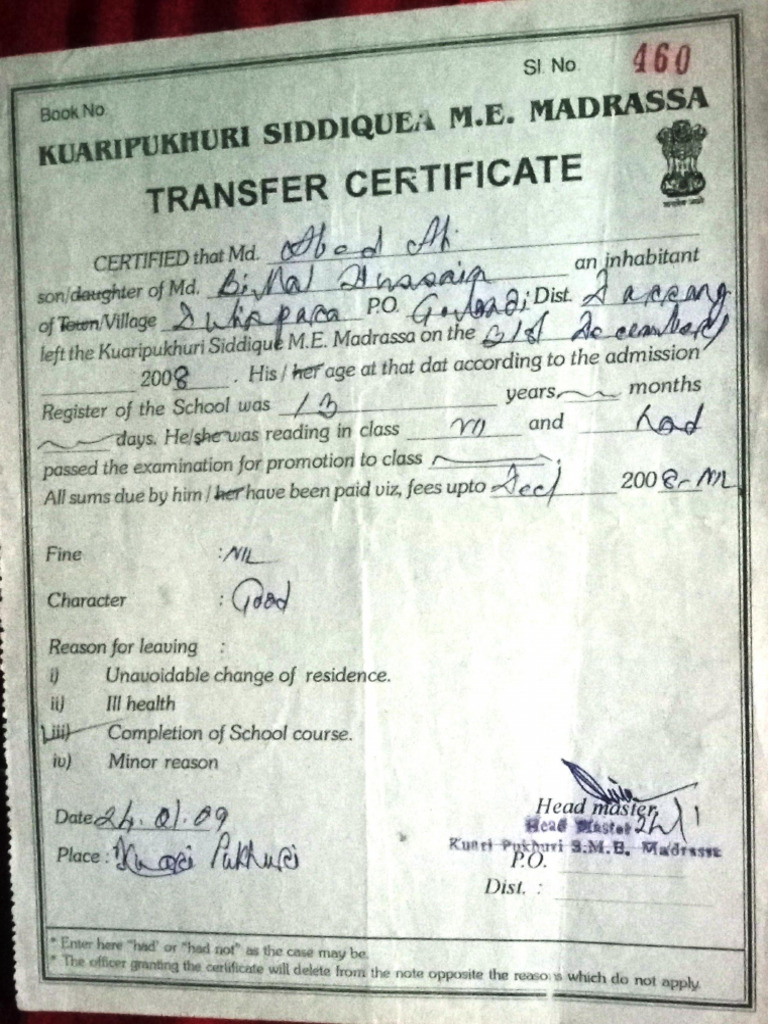 Sl. No. 460
Book No.
KUARIPUKHURI SIDDIQUEA M.E. MADRASSA
TRANSFER CERTIFICATE
CERTIFIED that Md. Abed Ali
son/daughter of Md. Billal Hussain an inhabitant
of Town/Village P.O. Dist. Darrang
left the Kuaripukhuri Siddique M.E. Madrassa on the 31st December
2008. His / her age at that dat according to the admission
Register of the School was 13 years, months
days. He/she was reading in class VII and had
passed the examination for promotion to class
All sums due by him / her have been paid viz, fees upto Dec/ 2008 - NIL
Fine : NIL
Character : Good
Reason for leaving :
i) Unavoidable change of residence.
ii) Ill health
iii) Completion of School course.
iv) Minor reason
Date 24.01.09
Head master,
Head Master 24/1
Place : Kuari Pukhuri
Kuari Pukhuri S.M.E. Madrassa
P.O.
Dist. :
* Enter here "had' or "had not" as the case may be.
* The officer granting the certificate will delete from the note opposite the reasons which do not apply.